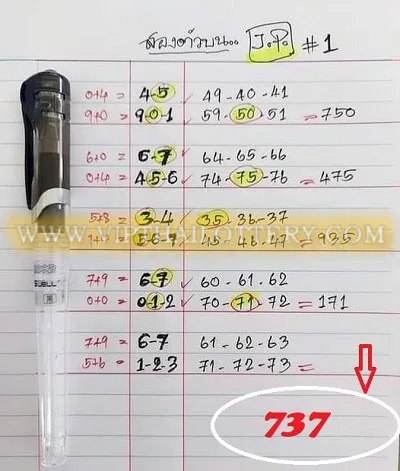 สองตัวบน... J.P. #1
0+4 = 4-5 ✓ 49-40-41
9+0 = 9-0-1 59-50-51 = 750
6+0 = 6-7 64-65-66
0+4 = 4-5-6 ✓ 74-75-76 = 475
5+8 = 3-4 35-36-37
5-6-7 45-46-47 = 935
WWW.VIPTHAILOTTERY.COM
7+9 = 6-7 60-61-62
0+0 = 0-1-2 70-71-72 = 171
7+9 = 6-7 61-62-63
5+6 = 1-2-3 71-72-73 =
737